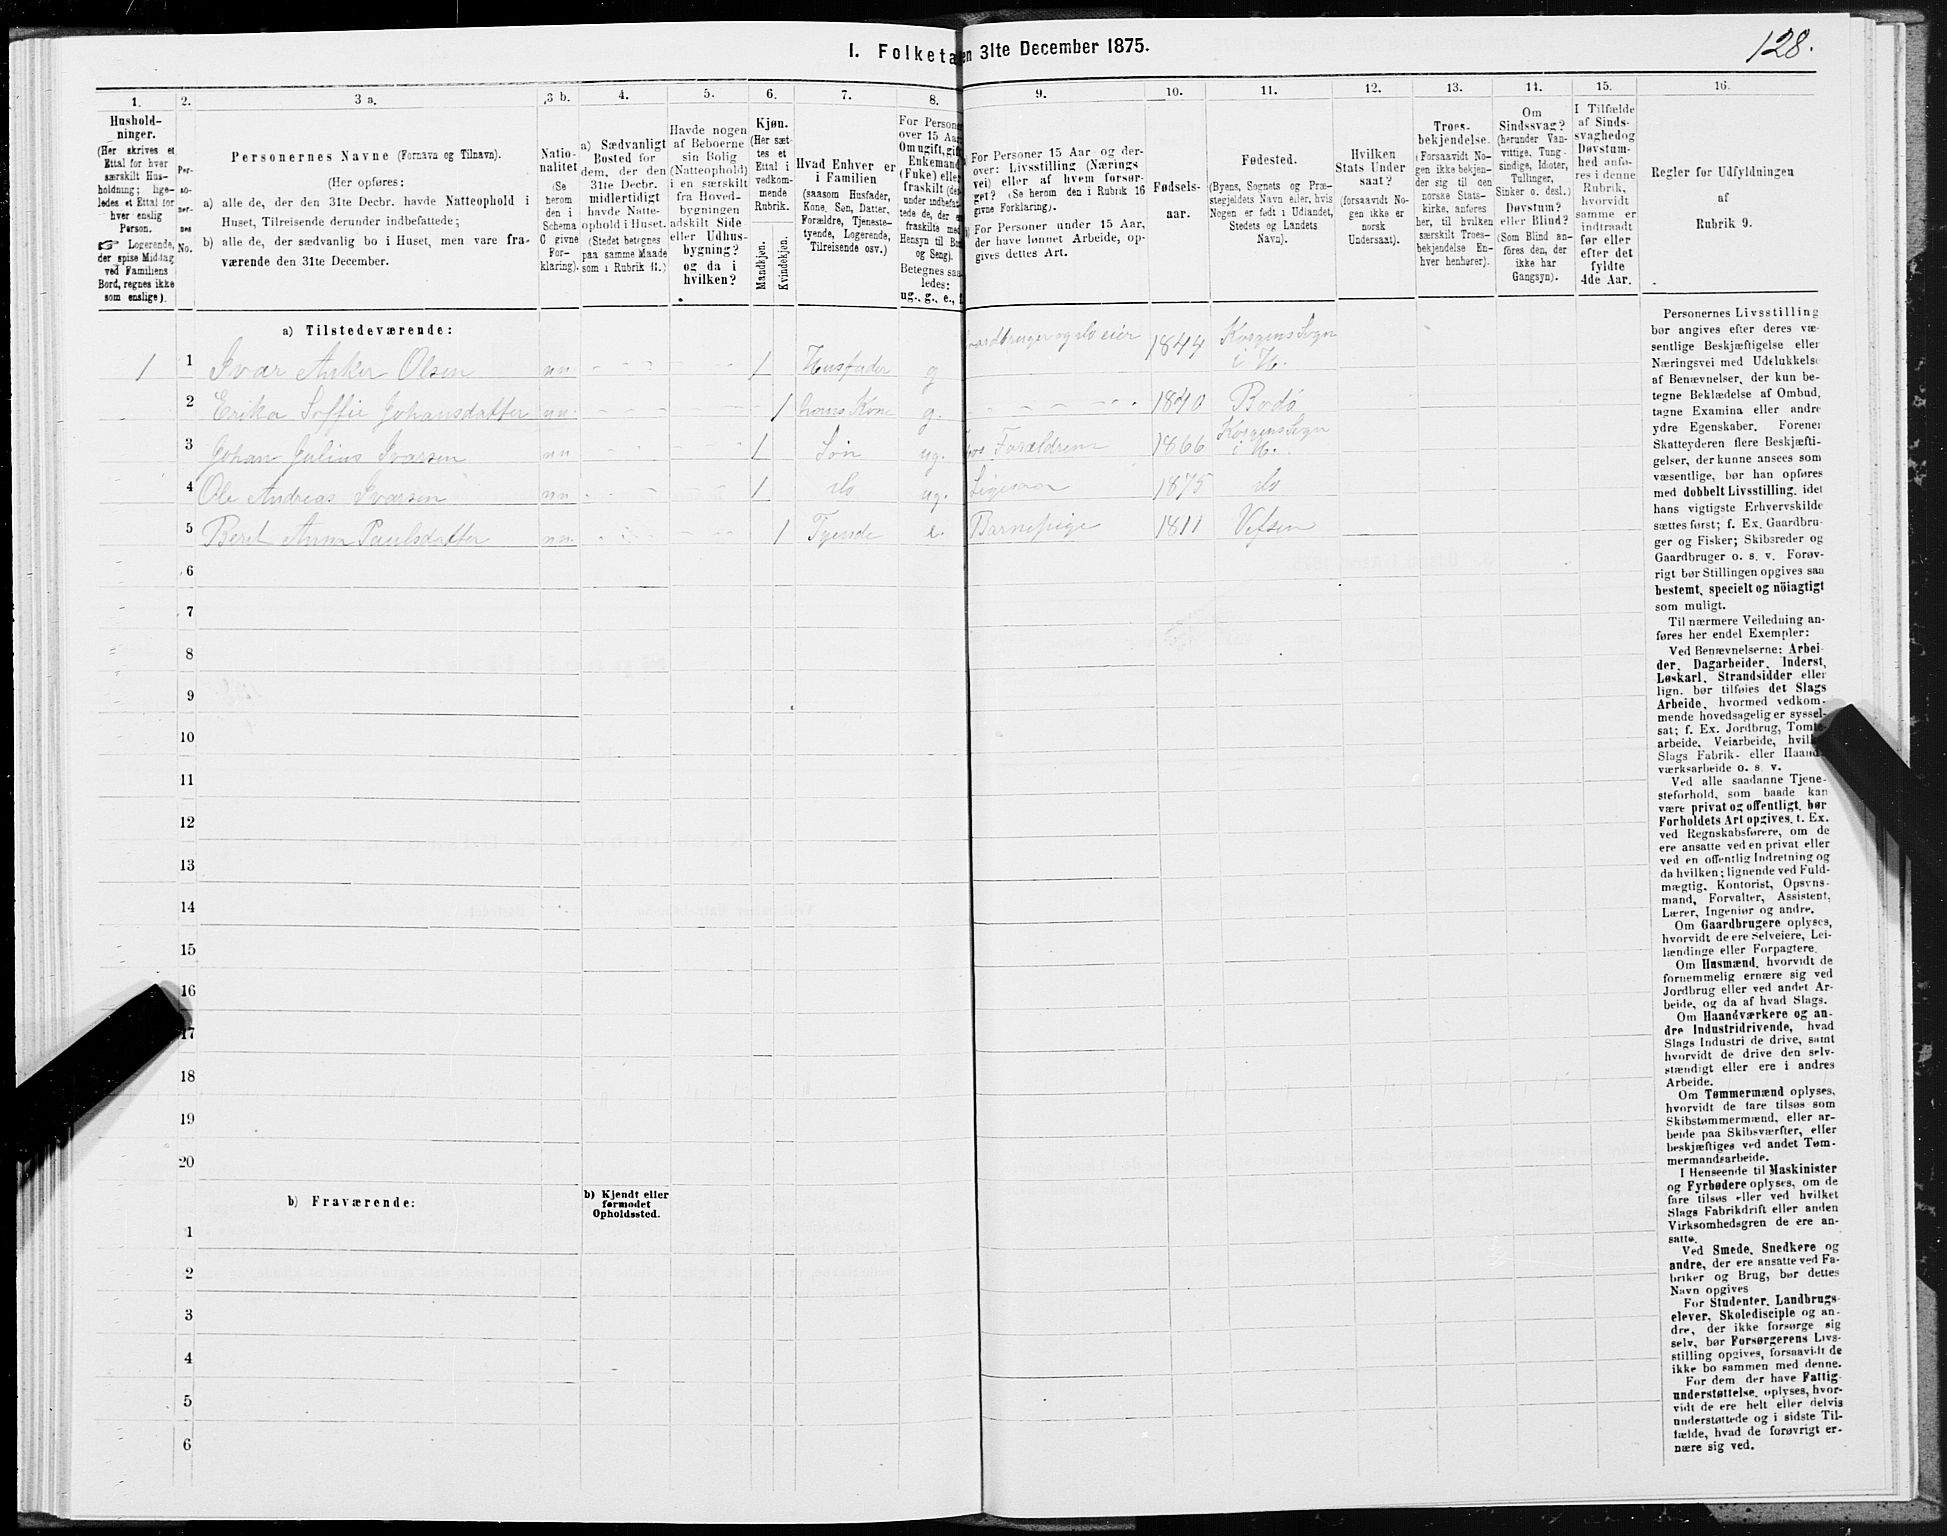 I. Folketæ
en 31te December 1875.
128.
1.
2.
3 a.
3 b.
4.
5.
6.
7.
8.
9.
10.
11.
12.
13.
14.
15.
16.
Hushold-
ninger.
(Her skrives et
Ettal for hver
særskilt Hus-
holdning; lige-
ledes et Ettal for
hver enslig
Person.
☞ Logerende,
der spise Middag
ved Familiens
Bord, regnes ikke
som enslige).
Per-
so-
ner-
nes
No.
Personernes Navne (Fornavn og Tilnavn).
(Her opføres:
a) alle de, der den 31te Decbr. havde Natteophold i
Huset, Tilreisende derunder indbefattede;
b) alle de, der sædvanlig bo i Huset, men vare fra-
værende den 31te December.
Natio-
nalitet
(Se
herom
den i
Schema
C givne
For-
klaring).
a) Sædvanligt
Bosted for
dem, der den
31te Decbr.
midlertidigt
havde Natte-
ophold i Huset.
(Stedet betegnes
paa samme Maade
som i Rubrik 11.)
Havde nogen
af Beboerne
sin Bolig
(Natteophold)
i en særskilt
fra Hoved-
bygningen
adskilt Side
eller Udhus-
bygning?
og da i
hvilken?
Kjøn.
(Her sæt-
tes et
Ettal i
vedkom-
mende
Rubrik.
Mandkjøn.
Kvindekjøn.
Hvad Enhver er
i Familien
(saasom Husfader,
Kone, Søn, Datter,
Forældre, Tjeneste-
tyende, Logerende,
Tilreisende osv.)
For Persone
over 15 Aar
Om ugift, gift,
Enkemand
(Enke) eller
fraskilt (der-
under indbefat-
tede de, der er
fraskilte med
Hensyn til Bo
og Seng).
Betegnes saa
ledes:
ug., g., e., f.
For Personer 15 Aar og der-
over: Livsstilling (Nærings
vei) eller af hvem forsør-
get? (Se herom den i Rubrik 16
givne Forklaring).
For Personer under 15 Aar,
der have lønnet Arbeide, op-
gives dettes Art.
Fødsels-
aar.
Fødested.
(Byens, Sognets og Præ-
stegjeldets Navn eller, hvis
Nogen er født i Udlandet,
Stedets og Landets
Navn).
Hvilken
Stats Under
saat?
(forsaavidt No-
gen ikke er
norsk
Undersaat).
Troes-
bekjendelse.
(Forsaavidt No-
gen ikke bekjen-
der sig til den
norske Stats-
kirke, anføres
her, til hvilken
særskilt Troes-
bekjendelse En-
hver henhører).
Om
Sindssvag?
(herunder Van-
vittige, Tung-
sindige, Idioter,
Tullinger,
Sinker o. desl.)
Døvstum?
eller Blind?
(Som Blind an-
føres den, der
ikke har
Gangsyn).
I Tilfælde
af Sinds-
svaghed og
Døvstum-
hed anfø-
res i denne
Rubrik,
hvorvidt
samme er
indtraadt
før eller
efter det
fyldte
4de Aar.
Regler for Udfyldningen
af
Rubrik 9.
a) Tilstedeværende:
1 1 Ivar Anker Olsen nn. 1 Husfader g aardbruger og slo eier 1844 Korgens Sogn i H.
2 Erika Soffie Johansdatter nn. 1 hans Kone g. 1840 Bodø
3 Johan Julius Ivarsen nn 1 Søn ug. os Forældrene 1866 Korgens Sogn i H.
4 Ole Andreas Ivarsen nn. 1 do ug. Ligesaa 1875 do
5 Beret Anna Paulsdatter nn. 1 Tyende e. Barnepige 1811 Vefsen
6
7
8
9
10
11
12
13
14
15
16
17
18
19
20
b) Fraværende:
b) Kjendt eller
formodet
Opholdssted.
1
2
3
4
5
6
Personernes Livsstilling
bør angives efter deres væ-
sentlige Beskjæftigelse eller
Næringsvei med Udelukkelse
af Benævnelser, der kun be-
tegne Beklædelse af Ombud,
tagne Examina eller andre
ydre Egenskaber. Forener
Skatteyderen flere Beskjæfti-
gelser, der kunne ansees som
væsentlige, bør han opføres
med dobbelt Livsstilling, idet
hans vigtigste Erhvervskilde
sættes først; f. Ex. Gaardbru-
ger og Fisker; Skibsreder og
Gaardbruger o. s. v. Forøv-
rigt bør Stillingen opgives saa
bestemt, specielt og nöiagtigt
som muligt.
Til nærmere Veiledning an-
føres her endel Exempler:
Ved Benævnelserne: Arbei-
der, Dagarbeider, Inderst,
Løskarl, Strandsidder eller
lign. bør tilføies det Slags
Arbeide, hvormed vedkom-
mende hovedsagelig er syssel-
sat; f. Ex. Jordbrug, Tomte-
arbeide, Veiarbeide, hvilke
Slags Fabrik- eller Haand-
værksarbeide o. s. v.
Ved alle saadanne Tjene-
steforhold, som baade kan
være privat og offentligt, bør
Forholdets Art opgives, t. Ex.
ved Regnskabsførere, om de
ere ansatte ved en privat eller
ved en offentlig Indretning og
da hvilken; lignende ved Fuld-
mægtig, Kontorist, Opsyns-
mand, Forvalter, Assistent,
Lærer, Ingeniør og andre.
Om Gaardbrugere oplyses,
hvorvidt de ere Selveiere, Lei-
lændinge eller Forpagtere.
Om Husmænd, hvorvidt de
fornemmelig ernære sig ved
Jordbrug eller ved andet Ar-
beide, og da af hvad Slags.
Om Haandværkere og an-
dre Industridrivende, hvad
Slags Industri de drive, samt
hvorvidt de drive den selv-
stændigt eller ere i andres
Arbeide.
Om Tømmermænd oplyses,
hvorvidt de fare tilsøs som
Skibstømmermænd, eller ar-
beide paa Skibsværfter, eller
beskjæftiges ved andet Tøm-
mermandsarbeide.
I Henseende til Maskinister
og Fyrbødere oplyses, om de
fare tilsøs eller ved hvilket
Slags Fabrikdrift eller anden
Virksomhedsgren de ere an-
satte.
Ved Smede, Snedkere og
andre, der ere ansatte ved Fa-
briker og Brug, bør dettes
Navn opgives
For Studenter, Landbrugs-
elever, Skoledisciple og an-
dre, der ikke forsørge sig
selv, bør Forsørgerens Livs-
stilling opgives, forsaavidt de
ikke bo sammen med denne.
For dem, der have Fattig-
understøttelse, oplyses, hvor-
vidt de ere helt eller delvis
understøttede og i sidste Til-
fælde, hvad de forøvrigt er-
nære sig ved.